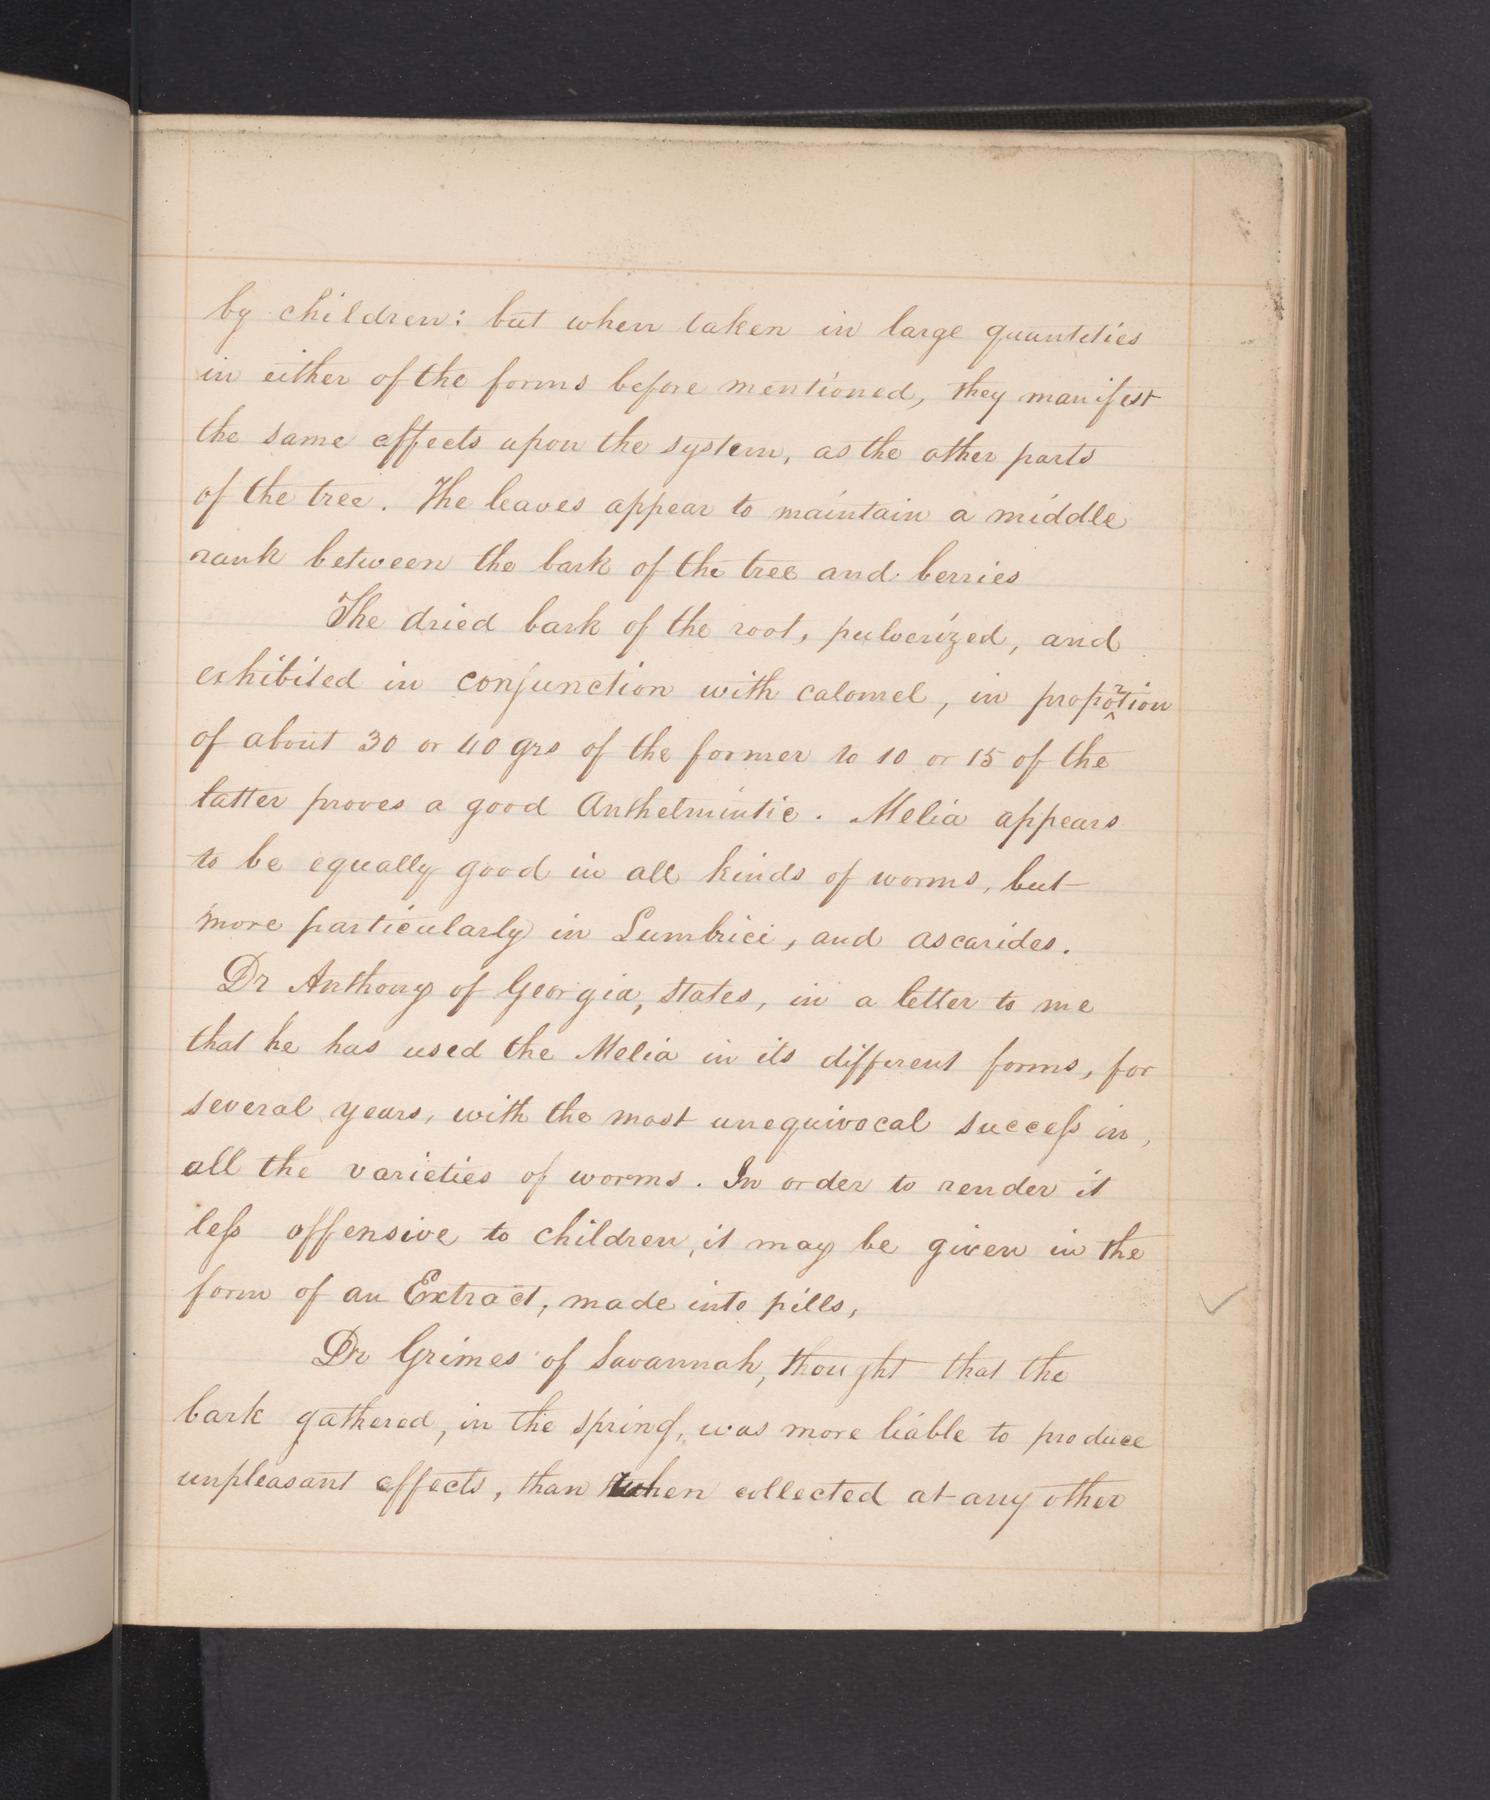 by children: but when taken in large quantities
in either of the forms before mentioned, they manifest
the same effects upon the system, as the other parts
of the tree. The leaves appear to maintain a middle
rank between the bark of the tree and berries
The dried bark of the root, pulverized, and
exhibited in conjunction with calomel, in proportion
of about 30 or 40 grs of the former to 10 or 15 of the
latter proves a good Anthelmintic. Melia appears
to be equally good in all kinds of worms, but
more particularly in Lumbrici, and ascarides.
Dr Anthony of Georgia, states, in a letter to me
that he has used the Melia in its different forms, for
several years, with the most unequivocal succeſs in,
all the varieties of worms. In order to render it
leſs offensive to children, it may be given in the
form of an Extract, made into pills,
Dr Grimes of Savannah, thought that the
bark gathered, in the spring, was more liable to produce
unpleasant effects, than when collected at any other